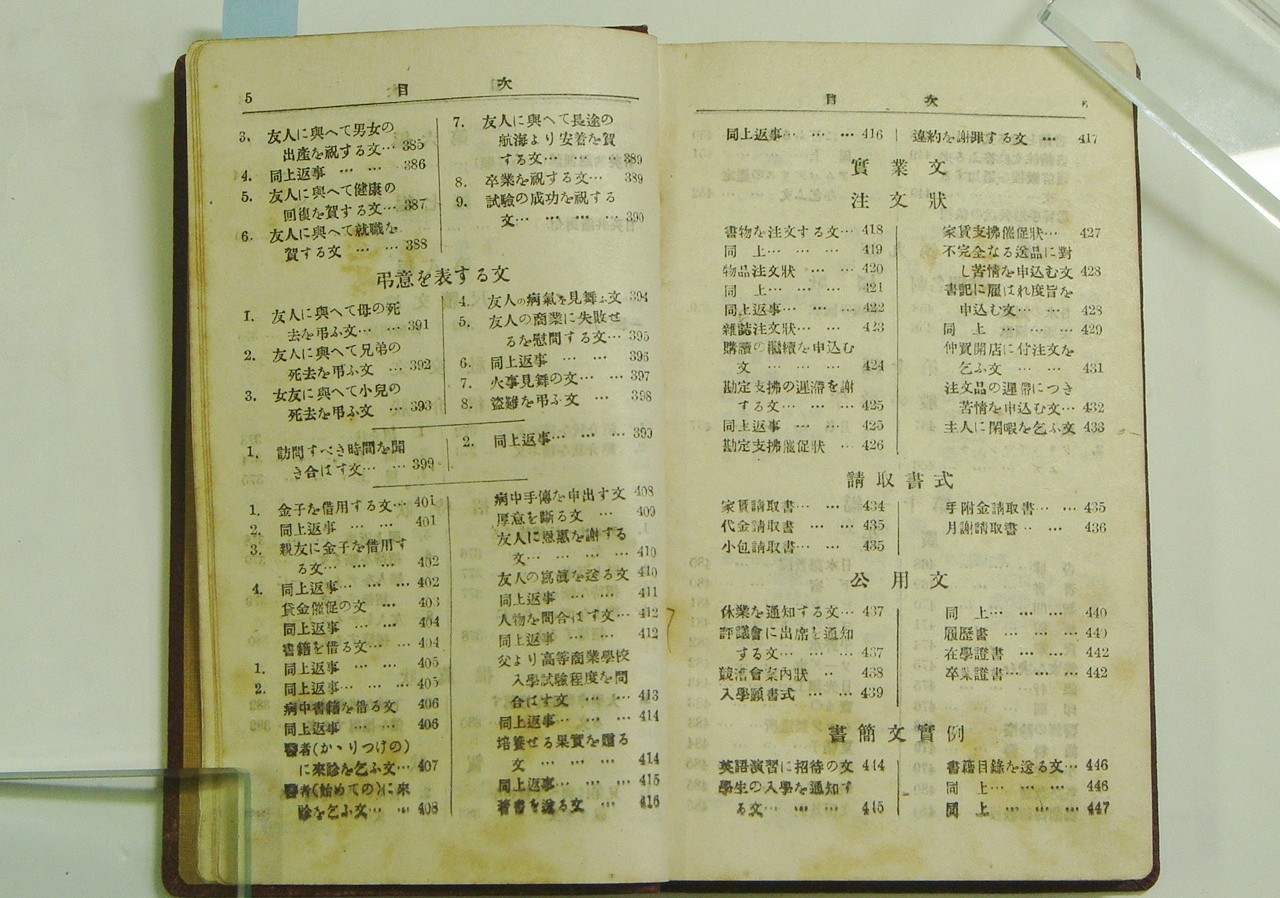 5 目次
3. 友人に與へて男女の
出產を祝する文… 385
4. 同上返事 … … … 386
5. 友人に與へて健康の
回復を賀する文… 387
6. 友人に與へて就職を
賀する文 … … … 388
7. 友人に與へて長途の
航海より安着を賀
する文… … … … 389
8. 卒業を祝する文… 389
9. 試驗の成功を祝する
文… … … … … 390
弔意を表する文
1. 友人に與へて母の死
去を弔ふ文… … 391
2. 友人に與へて兄弟の
死去を弔ふ文 … 392
3. 女友に與へて小兒の
死去を弔ふ文 … 393
4. 友人の病氣を見舞ふ文 394
5. 友人の商業に失敗せ
るを慰問する文… 395
6. 同上返事 … … … 396
7. 火事見舞の文… … 397
8. 盜難を弔ふ文 … 398
1. 訪問すべき時間を聞
き合はす文… … 399
2. 同上返事… … … 399
1. 金子を借用する文… 401
2. 同上返事 … … … 401
3. 親友に金子を借用す
る文… … … … 402
4. 同上返事… … … 402
貸金催促の文 … 403
同上返事 … … … 404
書籍を借る文… … 404
1. 同上返事 … … … 405
2. 同上返事… … … 405
病中書籍を借る文 406
同上返事 … … … 406
醫者(かゝりつけの)
に來診を乞ふ文… 407
醫者(始めての)に來
診を乞ふ文… … 408
病中手傳を申出す文 408
厚意を斷る文 … 409
友人に恩惠を謝する
文… … … … … 410
友人の寫眞を送る文 410
同上返事 … … … 411
人物を問合はす文… 412
同上返事 … … … 412
父より高等商業學校
入學試驗程度を問
合はす文… … … 413
同上返事… … … 414
培養せる果實を贈る
文 … … … … 414
同上返事… … … 415
著書を送る文 … 416
目次
同上返事… … … 416
違約を謝罪する文 … 417
實業文
注文狀
書物を注文する文… 418
同 上… … … … 419
物品注文狀 … … 420
同 上… … … … 421
同上返事… … … 422
雜誌注文狀… … 423
購讀の繼續を申込む
文 … … … … 424
勘定支拂の遲滯を謝
する文… … … 425
同上返事… … … 425
勘定支拂催促狀 … 426
家賃支拂催促狀… 427
不完全なる送品に對
し苦情を申込む文 428
書記に雇はれ度旨を
申込む文… … 428
同 上… … … … 429
仲買開店に付注文を
乞ふ文 … … … 431
注文品の遲滯につき
苦情を申込む文… 432
主人に閑暇を乞ふ文 433
請取書式
家賃請取書… … 434
代金請取書 … … 435
小包請取書… … 435
手附金請取書… … 435
月謝請取書… … 436
公用文
休業を通知する文… 437
評議會に出席を通知
する文… … … 437
競漕會案內狀 … 438
入學願書式 … … 439
同 上… … … … 440
履歷書 … … … 440
在學證書… … … 442
卒業證書… … … 442
書簡文實例
英語演習に招待の文 444
學生の入學を通知す
る文… … … … 445
書籍目錄を送る文… 446
同 上 … … … … 446
同 上 … … … … 447